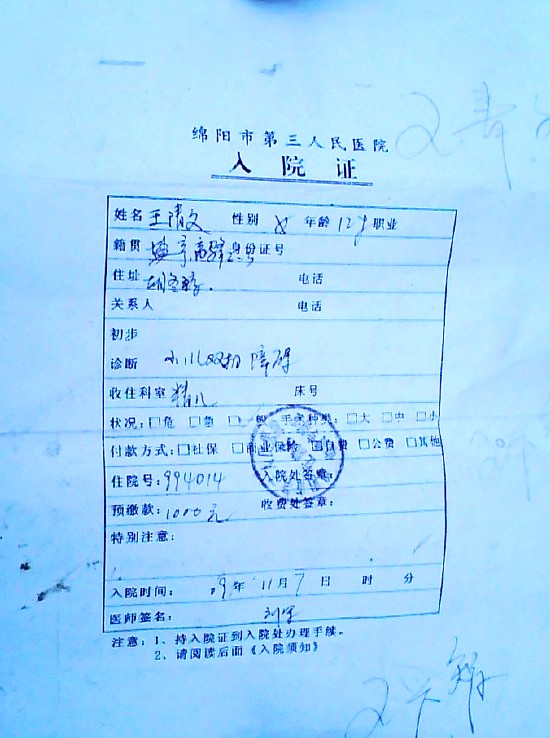 绵阳市第三人民医院
入院证
姓名 王清文 性别 女 年龄 12岁 职业
籍贯 证号
住址 电话
关系人 电话
初步
诊断 小儿双相障碍
收住科室 精儿 床号
状况:□危 □急 □一般 手术种类:□大 □中 □小
付款方式:□社保 □商业保险 □自费 □公费 □其他
住院号:994014 入院处签章:
预缴款:1000元 收费处签章:
特别注意:
入院时间: 09年 11月7日 时 分
医师签名:
注意:1、持入院证到入院处办理手续。
2、请阅读后面《入院须知》